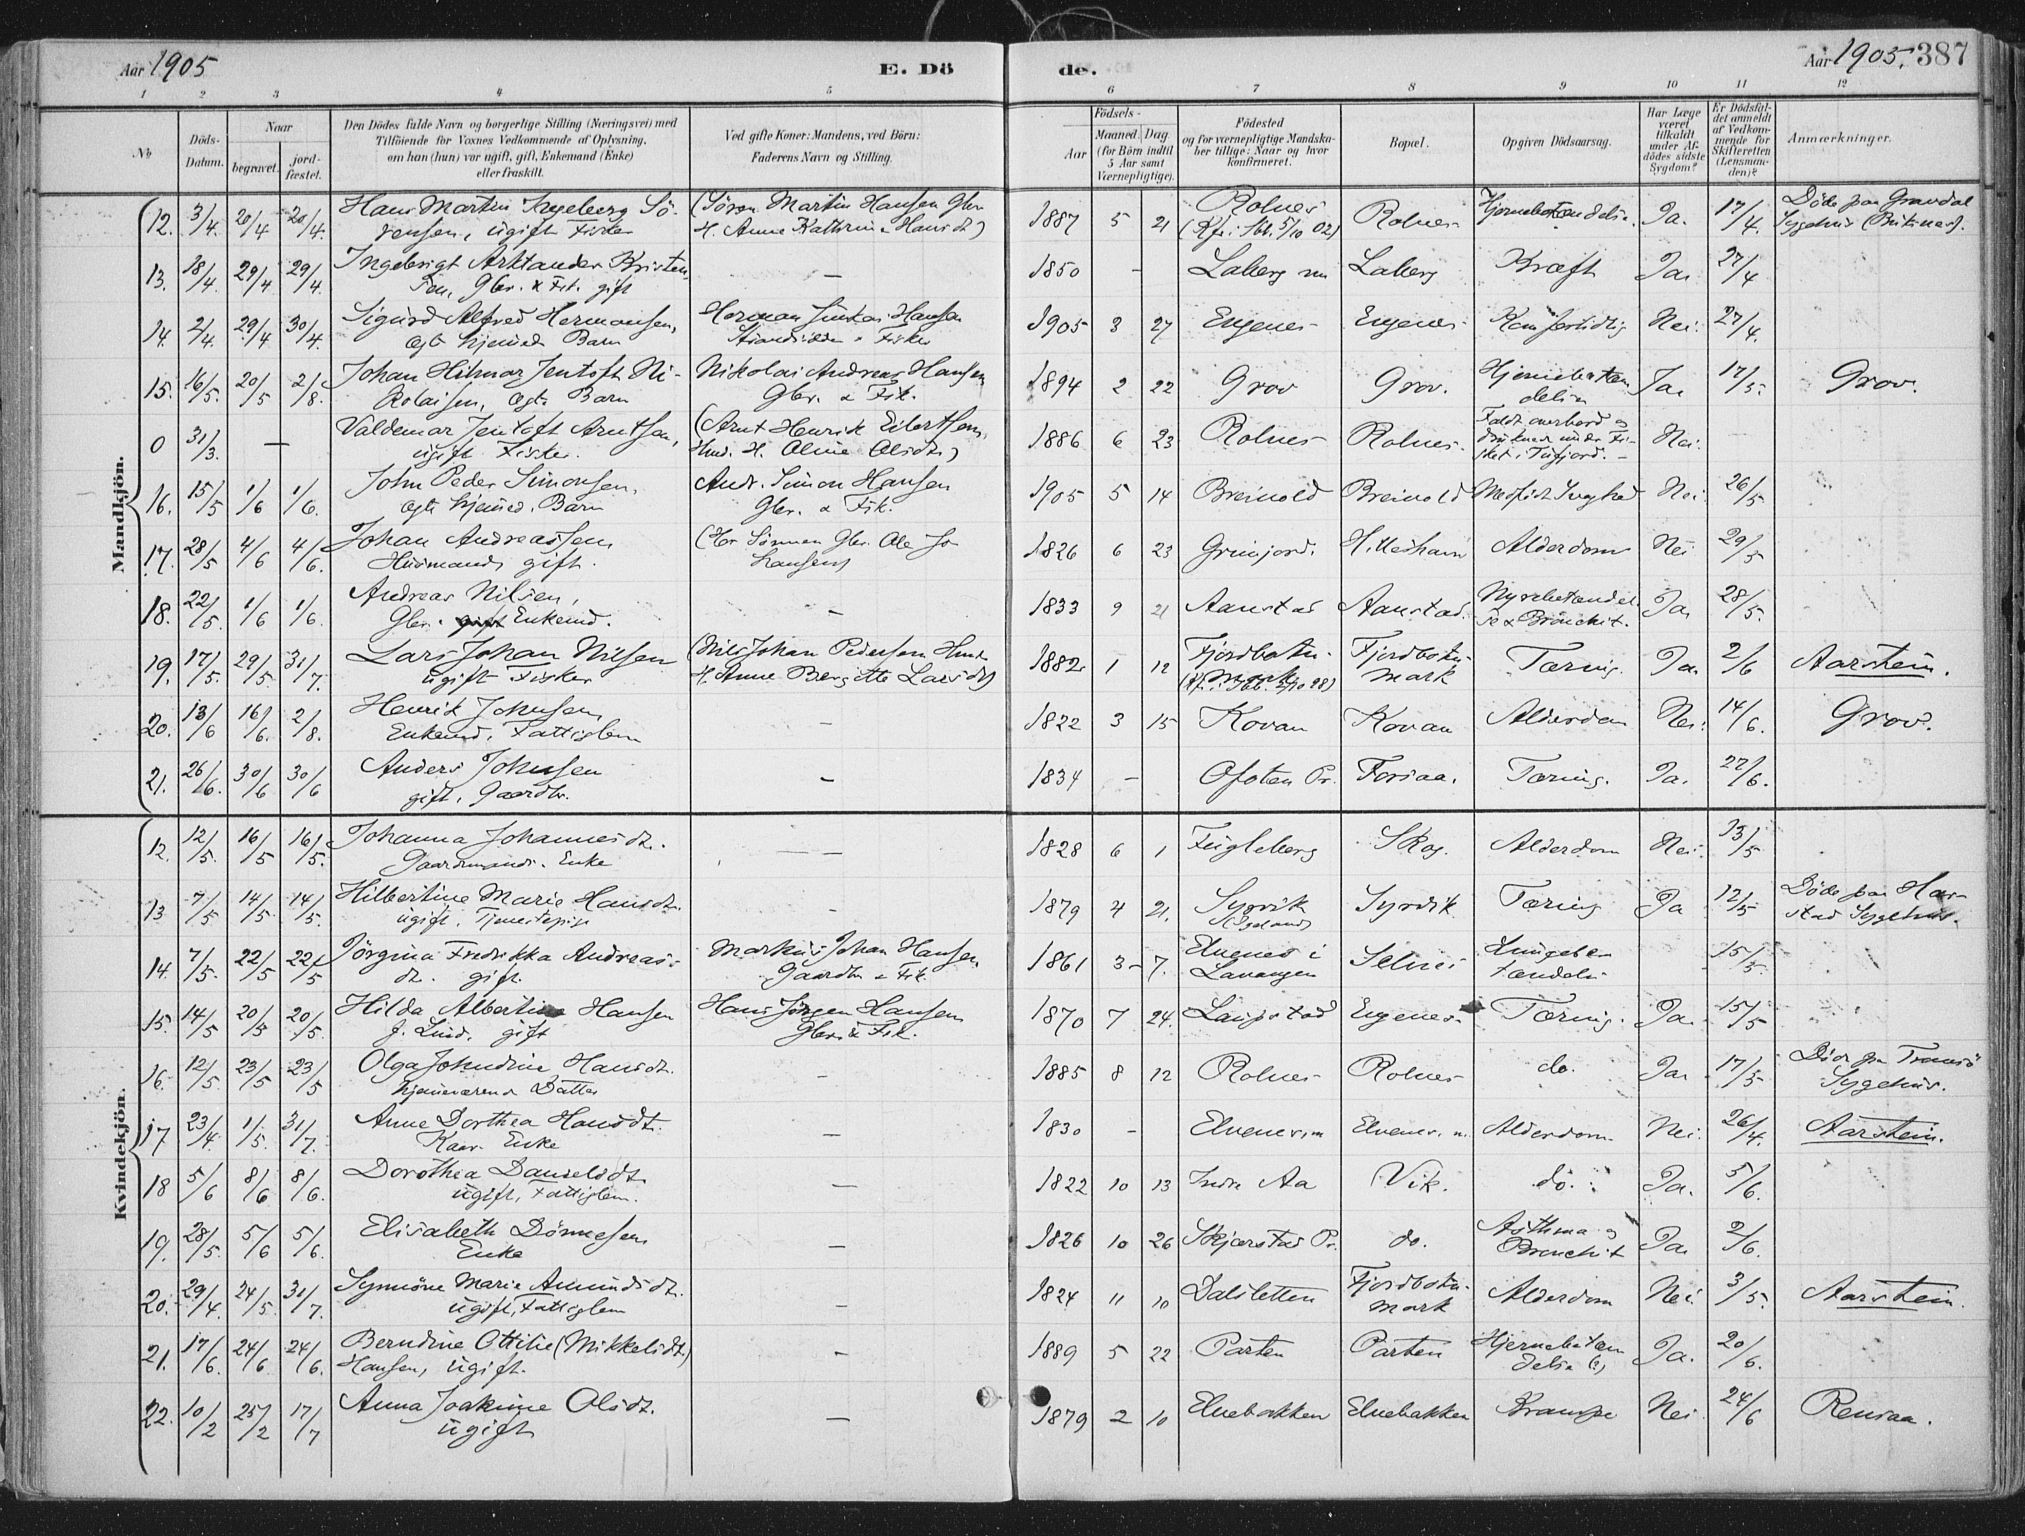 Aar 1905
E. Dö
de.
Aar 1905.
387
1 2 3 4 5 6 7 8 9 10 11 12
No
Döds-Datum.
Naar
begravet.
jord-fæstet.
Den Dödes fulde Navn og borgerlige Stilling (Næringsvei) med
Tilföiende for Voxnes Vedkommende af Oplysning,
om han (hun) var ugift, gift, Enkemand (Enke)
eller fraskilt.
Ved gifte Koner: Mandens, ved Börn:
Faderens Navn og Stilling.
Födsels-
Aar
Maaned. Dag
(for Börn indtil
5 Aar samt
Værnepligtige).
Födested
og for værnepligtige Mandska-
ber tillige: Naar og hvor
konfirmeret.
Bopæl.
Opgiven Dödsaarsag.
Har Læge
været
tilkaldt
under Af-
dödes sidste
Sygdom?
Er Dödsfal-
det anmeldt
af Vedkom-
mende for
Skifteretten
(Lensman-
den)?
Anmærkninger.
Mandkjön.
12. 3/4. 20/4 20/4. Hans Martin Ingeberg Sö- (Sören Martin Hansen Gbr. 1887 5 21 Rolnes Rolnes Hjernebetændelse Ja. 17/4. Döde paa Gravdal
rensen, ugift Fisker H. Anne Kathrine Hansdt) 5/10 02) Sygehus
13. 18/4. 29/4 29/4. Ingebrigt Arktander Kristen- — 1850 - Laberg Laberg Kræft Ja. 27/4
sen, Gbr. & Fsk. gift
14. 2/4. 29/4 30/4. Sigurd Alfred Hermansen, Herman Hansen 1905 3 27 Engenes Engenes Nei. 27/4.
ægte hjemmed. Barn Strandsidder & Fisker
15. 16/5. 20/5 2/8. Johan Hilmar Jentoft Ni- Nikolai Andreas Hansen 1894 2 22 Grov Grov. Hjernebetæn- Ja 17/5. Grov.
kolaisen, ægte Barn Gbr. & Fsk. delse
0 31/3. — Valdemar Jentoft Arntsen, (Arnt Henrik Eilertsen, 1886 6 23 Rolnes Rolnes. Faldt overbord og Nei.
ugift Fisker. Hmd. H. Oline Olsdt) druknede under Fi-
sket i Tufjord. -
16. 15/5 1/6 1/6. John Peder Simonsen, Andr. Simon Hansen 1905 5 14 Breivold Breivold Medfödt Svaghed Nei 26/5
ægte hjemmed. Barn Gbr. & Fsk.
17. 28/5 4/6 4/6. Johan Andreassen, Gbr. Ole Jo- 1826 6 23 Grunfjord. Alderdom Nei 29/5
Husmand, gift. hansen)
18. 22/5. 1/6 1/6. Andreas Nilsen, — 1833 9 21 Aanstad Aanstad. Nyrebetændel- Ja 28/5.
Gbr. gift Enkemd. se & Bronchit.
19. 17/5. 29/5. 31/7. Lars Johan Nilsen (Nils Johan Pedersen Hmd. 1882 1 12 Fjordbotn- Fjordbotn- Tæring. Ja. 2/6 Aarstein.
ugift Fisker H. Anne Bergitte Larsdt) mark mark
20. 13/6 16/6. 2/8. Henrik Johnsen, — 1822 3 15 Kovan Kovan Alderdom Nei. 14/6. Grov.
Enkemd., Fattiglem
21. 26/6. 30/6 30/6 Anders Johnsen — 1834 - Ofoten Pr. Forsaa. Tæring. Ja. 27/6.
gift, Gaardbr.
Kvindekjön.
12. 12/5. 16/5 16/5. Johanna Johannesdt. — 1828 6 1 Fugleberg Skog. Alderdom Nei. 13/5
Gaardmands Enke
13 7/5 14/5. 14/5. Hilbertine Marie Hansdt. - 1879 4 21. Syrvik Syrvik Tæring Ja 12/5 Döde paa Har-
ugift, Tjenestepige stad Sygehus.
14. 7/5. 22/5 22/5 Jörgina Fredrikka Andreas- Markus Johan Hansen 1861 3 7. Elvenes i Selnes Lungebe- 15/5.
dt. gift Gaardbr. & Fsk. Lavangen tændelse
15. 14/5 20/5 20/5. Hilda Albertine Hansen Hans Jörgen Hansen 1870 7 24. Laupstad Engenes Tæring. Ja. 15/5
f. Lind, gift Gbr. & Fsk.
16. 12/5 23/5 23/5 Olga Johndine Hansdt. - 1885 8 12 Rolnes Rolnes do. Ja. 17/5 Döde paa Tromsö
hjemmeværende Datter Sygehus.
17 23/4. 1/5. 31/7. Anne Dorthea Hansdt. — 1830 - Elvenes Elvenes Alderdom. Nei. 26/4. Aarstein.
Enke
18 5/6 8/6 8/6. Dorothea Danielsdt. — 1822 10 13 Indre Aa Vik. do. Ja. 5/6.
ugift, Fattiglem.
19. 28/5. 5/6 5/6. Elisabeth Dönnesen — 1826 10 26 Skjerstad Pr. do. Asthma og Ja. 2/6.
Enke Bronchit
20. 29/4. 24/5. 31/7. Synnöve Marie Amundsdt. — 1824 11 10 Dalsletten Fjordbotn- Alderdom Nei. 3/5. Aarstein.
ugift, Fattiglem mark
21. 17/6. 24/6 24/6. Berndine Ottilie (Mikkelsdt.) — 1889 5 22 Parten Parten Hjernebetæn- Ja. 20/6.
Hansen, ugift. delse (?)
22. 10/2 25/2 17/7 Anna Joakime Olsdt. — 1879 2 10 Elvebakken Elvebakken Krampe Nei 24/6 Rensaa.
ugift